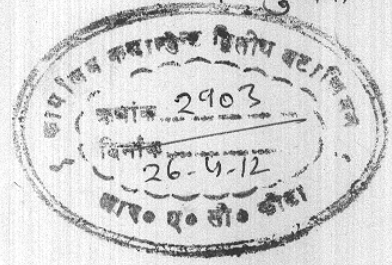 कार्यालय कमाण्डेन्ट द्वितीय बटालियन
क्रमांक 2903
दिनांक
26-4-12
आर० ए० सी० कोटा